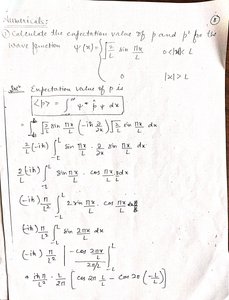 Numericals:
① Calculate the expectation value of p and p² for the
wave function ψ(x) = { √2/L sin πx/L 0<|x|<L
0 |x|>L
Solⁿ Expectation value of p is
<p> = ∫ ψ* p̂ ψ dx
= ∫ √2/L sin πx/L (-iħ ∂/∂x) √2/L sin πx/L dx
2/L (-iħ) ∫_{-L}^{L} sin πx/L · ∂/∂x sin πx/L dx
2/L (-iħ) ∫_{-L}^{L} sin πx/L · cos πx/L dx
(-iħ) π/L² ∫_{-L}^{L} 2 sin πx/L · cos πx/L dx
(-iħ) π/L² ∫_{-L}^{L} sin 2πx/L dx
(-iħ) π/L² | -cos 2πx/L / 2π/L |_{-L}^{L}
iħπ/L² · L/2π [cos 2π L/L - cos 2π (-L/L)]